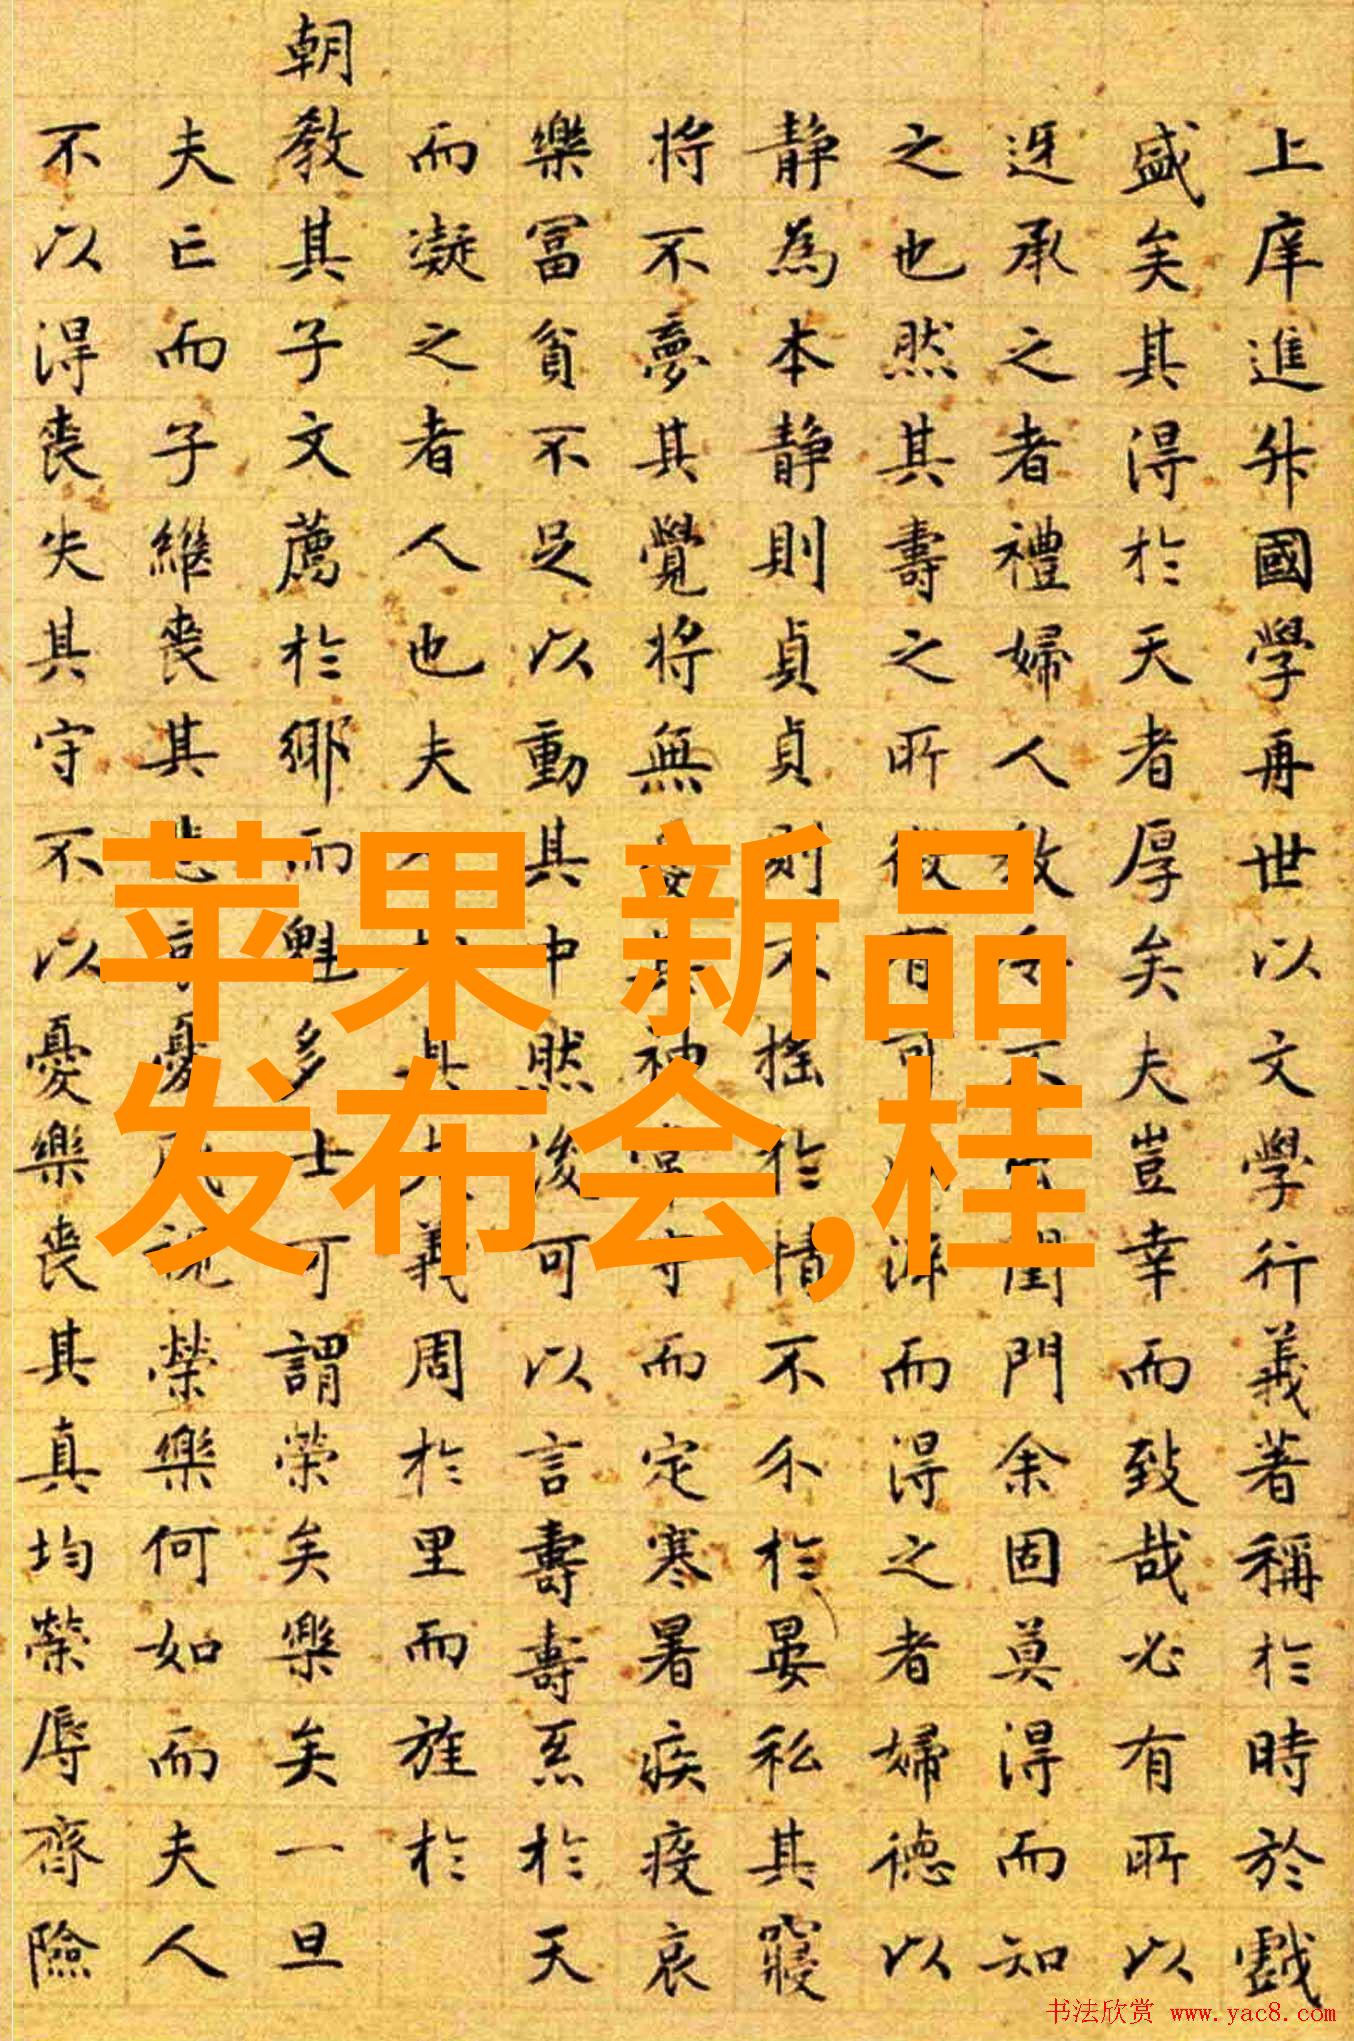 上庠進升國學再世以文學行義著稱於時於戲
盛矣其得於天者厚矣夫豈幸而致哉必有所以
迓承之者禮婦人教令不閨門余固莫得而知
之也然其壽之所徵有可而得之者婦德以
静為本静則貞貞則不搖於情不介於晏私其寢
将不夢其覺将無其神常守而定寒暑疾疫哀
樂冨貧不足以動其中然後可以言壽壽系於天
而凝之者人也夫其夫義周於里而旌於
朝教其子文薦於鄉而魁多士可謂荣矣樂矣一旦
夫亡而子繼喪其悲哀憂戚視榮樂何如而夫人
不以得喪失其守不以憂樂喪其真均榮辱齊險
苹果 新品
发布会,桂
书法欣赏 www.yac8.com